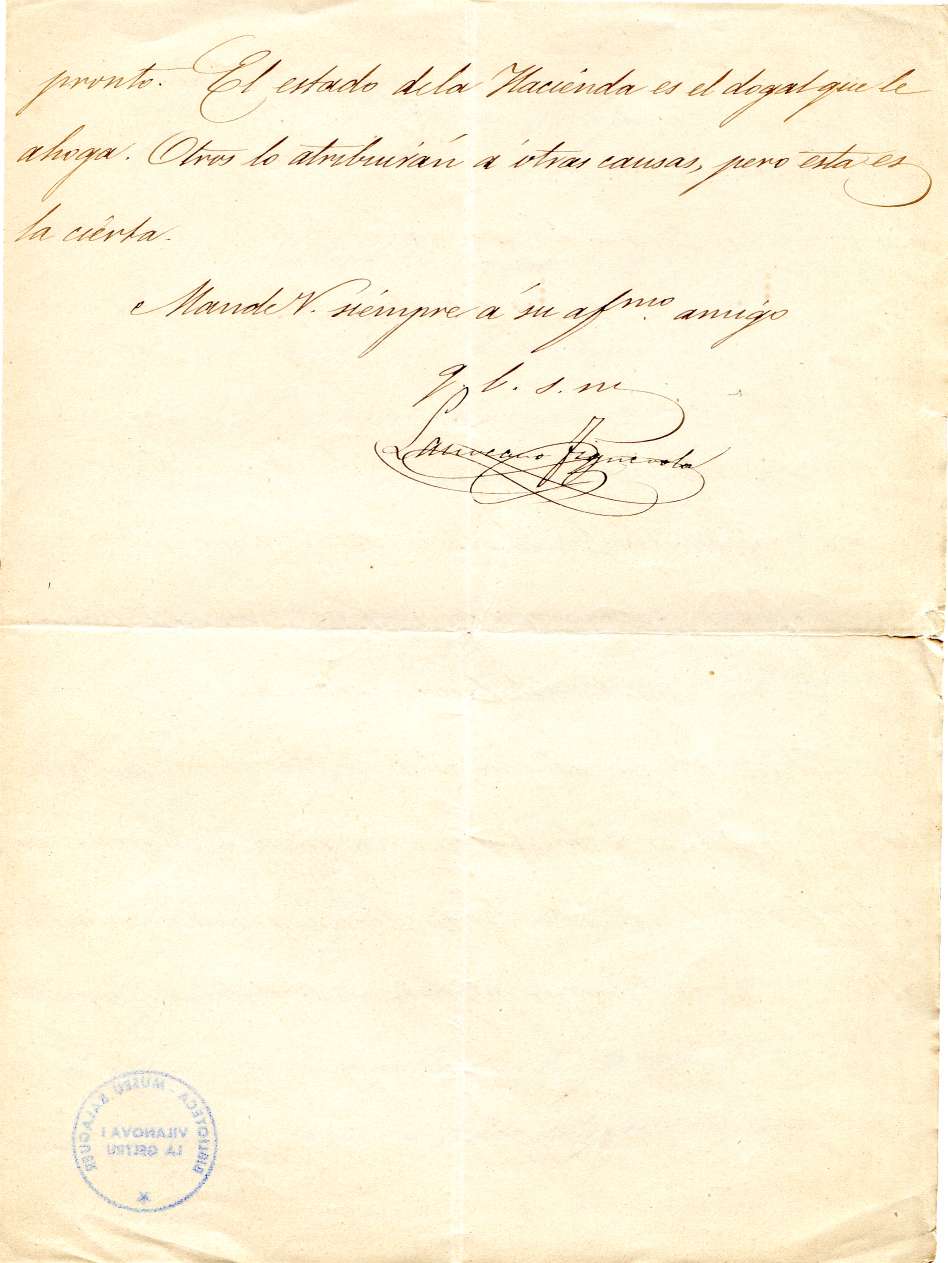 pronto. El estado dela Hacienda es el dogal que le
ahoga. Otros lo atribuirán á otras causas, pero esta es
la cierta.
Mande V. siempre á su afmo. amigo
q. b. s. m
Laureano Figuerola
BIBLIOTECA - MUSEU BALAGUER
VILANOVA I
LA GELTRU